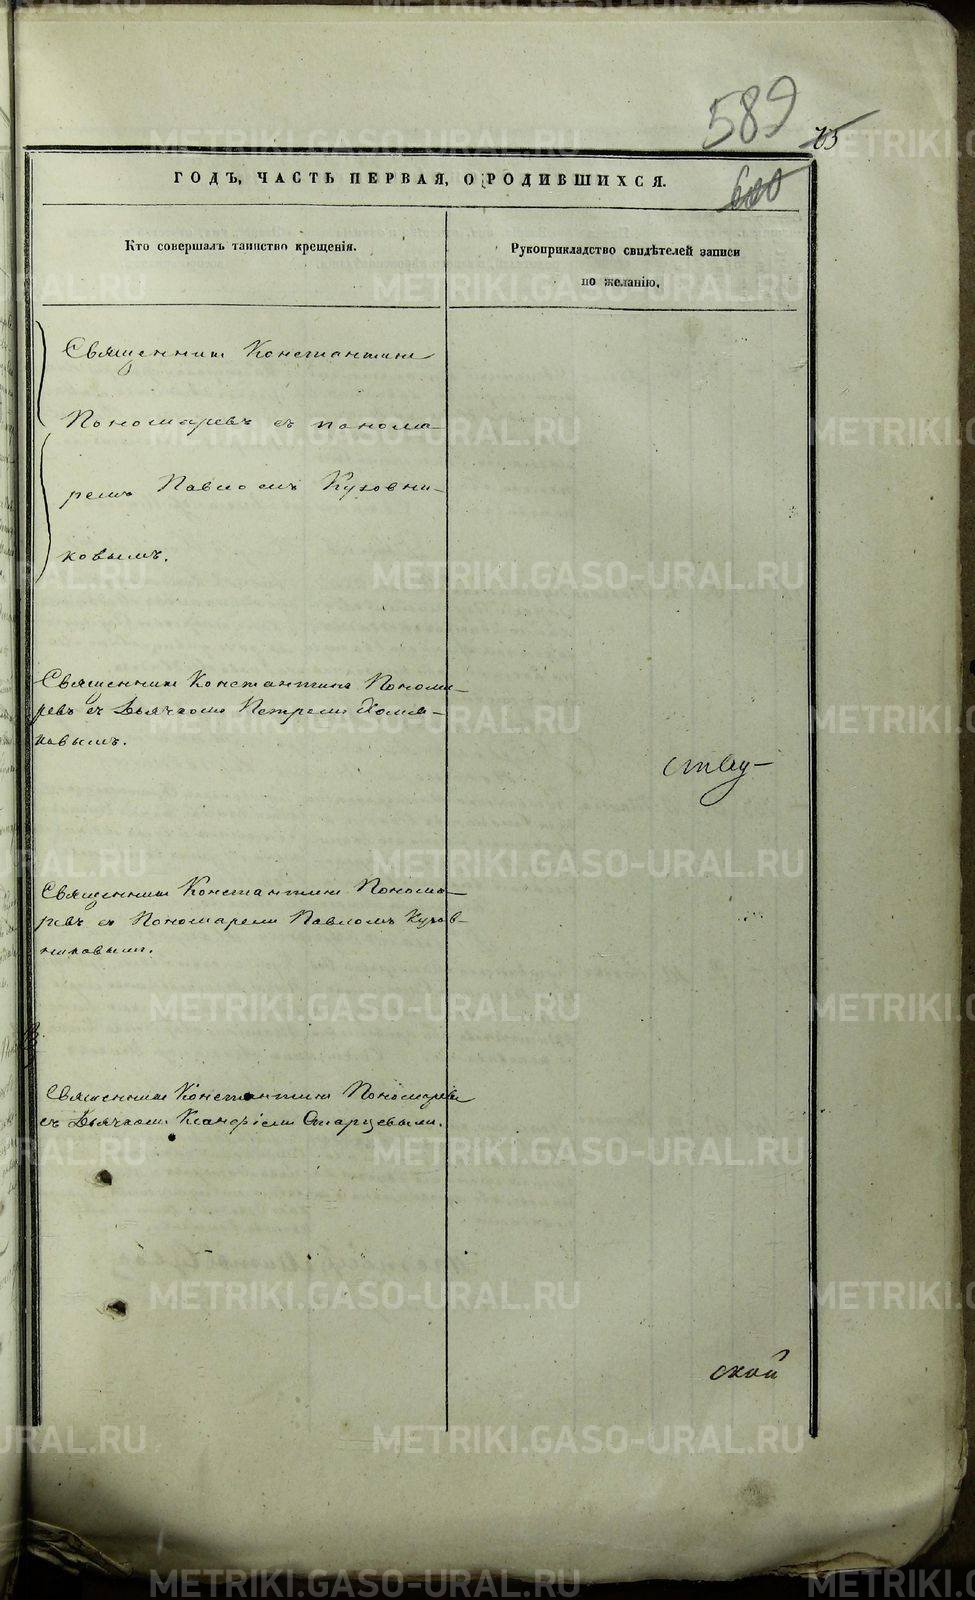 589
75
600
ГОДЪ, ЧАСТЬ ПЕРВАЯ, О РОДИВШИХСЯ.
Кто совершалъ таинство крещенія.
Рукоприкладство свидѣтелей записи
по желанію.
Священник Константин
Пономаревъ съ понома-
ремъ Павломъ Кузовни-
ковымъ.
Священник Константинъ Понома-
ревъ съ Дьячком Петрем Хомя-
ковымъ.
ству-
Священник Константин Понома-
ревъ съ Пономарем Павломъ Кузов-
никовым.
Священник Константин Пономарев
съ Дьячком Ксанфіем Старцевым.
ской
METRIKI.GASO-URAL.RU